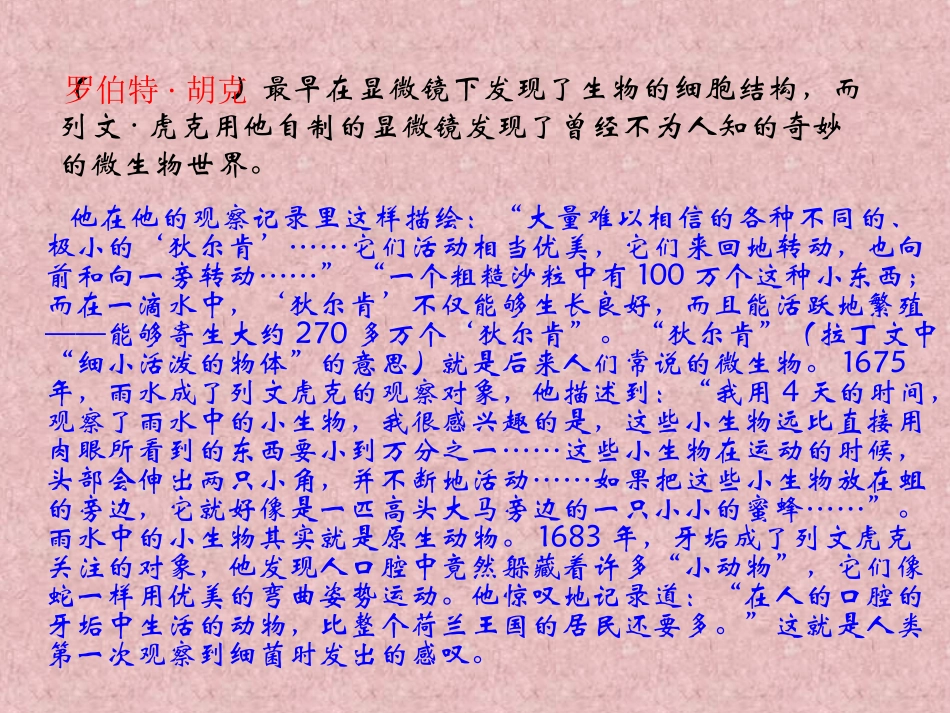 （罗伯特·胡克）最早在显微镜下发现了生物的细胞结构，而
列文·虎克用他自制的显微镜发现了曾经不为人知的奇妙
的微生物世界。
他在他的观察记录里这样描绘：“大量难以相信的各种不同的、
极小的‘狄尔肯’……它们活动相当优美，它们来回地转动，也向
前和向一旁转动……” “一个粗糙沙粒中有 100 万个这种小东西；
而在一滴水中，‘狄尔肯’不仅能够生长良好，而且能活跃地繁殖
——能够寄生大约 270 多万个‘狄尔肯”。“狄尔肯”（拉丁文中
“细小活泼的物体”的意思）就是后来人们常说的微生物。1675
年，雨水成了列文虎克的观察对象，他描述到：“我用 4 天的时间，
观察了雨水中的小生物，我很感兴趣的是，这些小生物远比直接用
肉眼所看到的东西要小到万分之一……这些小生物在运动的时候，
头部会伸出两只小角，并不断地活动……如果把这些小生物放在蛆
的旁边，它就好像是一匹高头大马旁边的一只小小的蜜蜂……”。
雨水中的小生物其实就是原生动物。1683 年，牙垢成了列文虎克
关注的对象，他发现人口腔中竟然躲藏着许多“小动物”，它们像
蛇一样用优美的弯曲姿势运动。他惊叹地记录道：“在人的口腔的
牙垢中生活的动物，比整个荷兰王国的居民还要多。”这就是人类
第一次观察到细菌时发出的感叹。